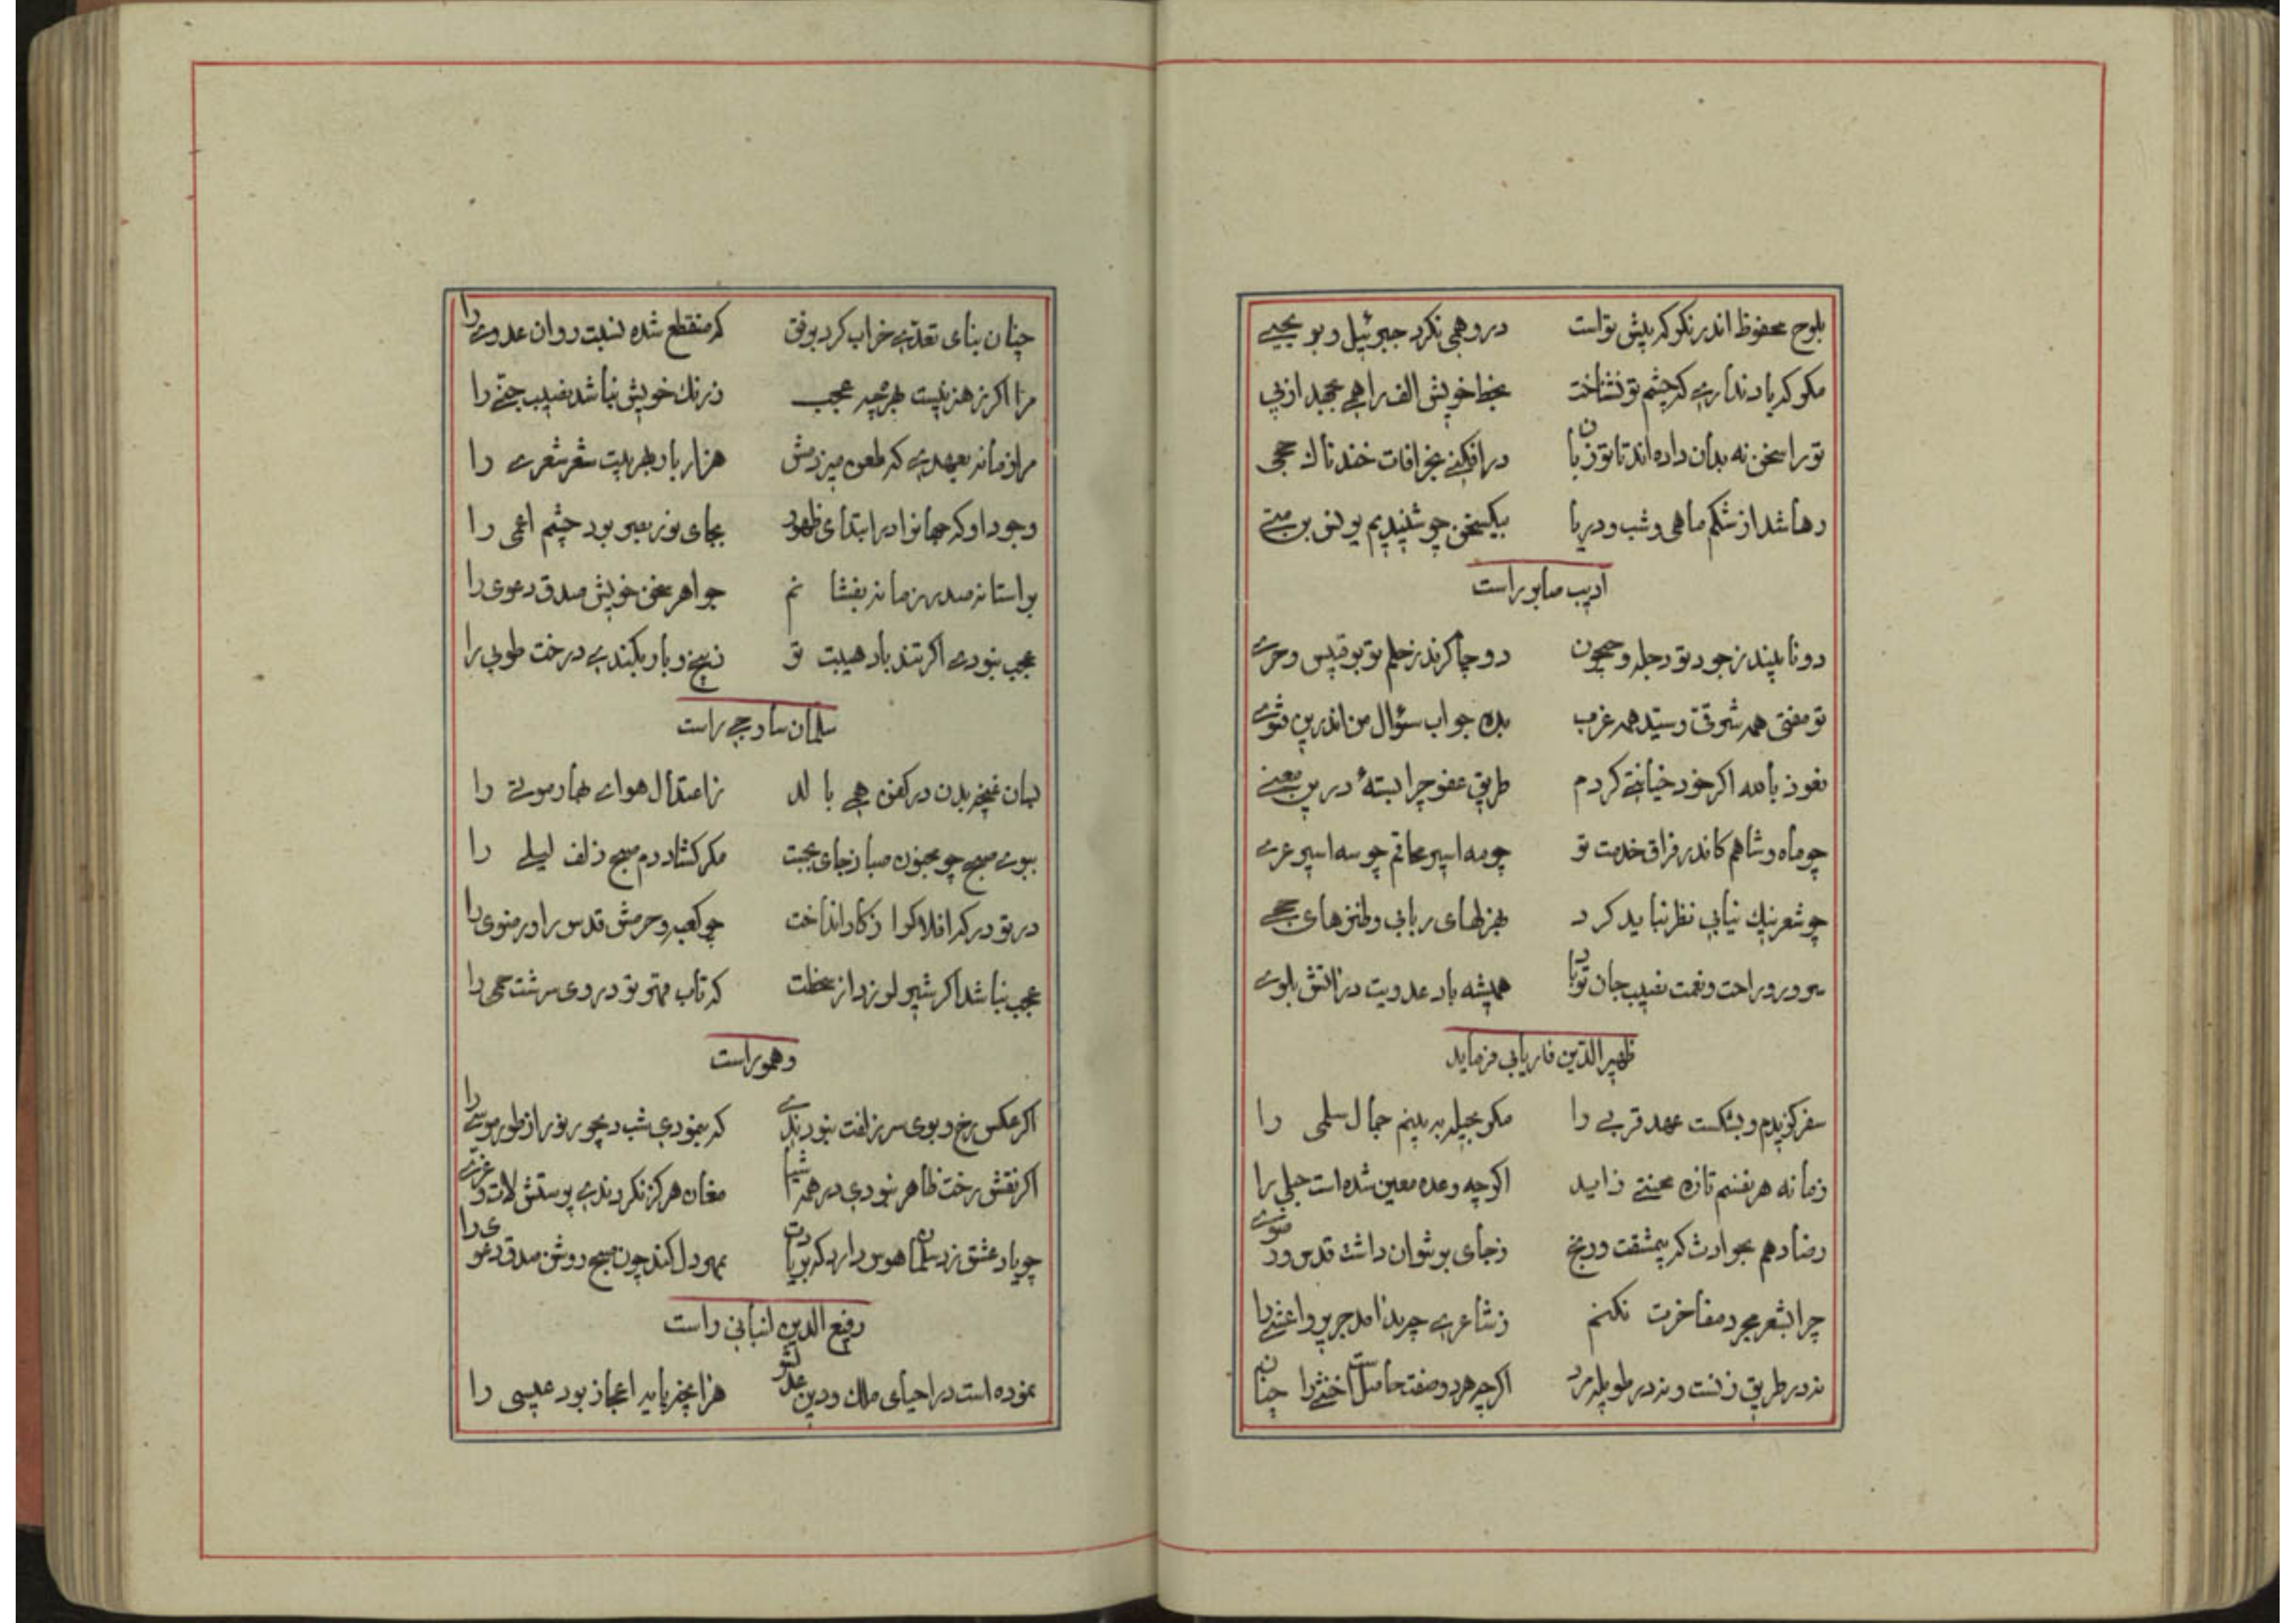 بلوح محفوظ اندر نكو كه پيش تو است درو همى نكرد جبرئيل و بو يحيى
مكو كه ياد ندارى كه چشم تو نشناخت بخط خويش الف را همى
تو را سخن نه بدان داده اند تا تو زبان در افكنى بخرافات خندناك جحى
رها شد از شكم ماهى و شب و دريا بيك سخن چو شنيديم يونس بن متى
اديب صابر راست
دو نا پسند ز جود تو دجله و جيحون دو چاكرند ز حلم تو بو قبيس و حرى
تو مفتى همه شرقى و سيد همه غرب بده جواب سؤال من اندرين فتوى
نعوذ بالله اكر خود خيانتى كردم طريق عفو چرا بستهٔ درين معنى
چو ماه و شاهم كاندر فراق خدمت تو چو مه اسير محاقم چو شه اسير عرى
چو شعر نيك نيابى نظر نبايد كرد بهزلهاى ربابى و طنزهاى جحى
سرور و راحت و نعمت نصيب جان تو باد هميشه باد عدويت در آتش بلوى
ظهير الدين فاريابى فرمايد
سفر كزيدم و بشكست عهد قربى را مكر بحيله ببينم جمال سلمى را
زمانه هر نفسم تازه محنتى زايد اكرچه وعده معين شده است حبلى را
رضا دهم بحوادث كه بيمشقت و رنج ز جاى بر نتوان داشت قدس و رضوى
چرا بشعر مجرد مفاخرت نكنم ز شاعرى چه بد آمد جرير و اعشى را
نه در طريق زنست و نه در طويله مرد اكرچه هر دو صفت حاصلست خنثى را چنان
چنان بناى تعدى خراب كرد بوفق كه منقطع شده نسبت روان عدوى را
مرا اكر ز هنر نيست بهره چه عجب ز رنك خويش نباشد نصيب حنى را
مرا زمانه بعهدى كه طعن ميزندش هزار بار بهر بيت شعر شعرى را
وجود او كه جهانرا در ابتداى ظهور بجاى نور بصر بود چشم اعمى را
بر استانه صدر زمانه بفشانم جواهر سخن خويش صدق دعوى را
عجب نبودى اكر تندباد هيبت تو ز بيخ و بار بكندى درخت طوبى را
سلمان ساوجى راست
بسان غنچه بدن در كفن همى بالد ز اعتدال هواى بهار موتى را
ببوى صبح چو مجنون صبا ز جاى بجست مكر كشاد دم صبح زلف ليلى را
در تو در كه افلاك را ز كار انداخت چو كعبه و حرمش قدس را و رضوى را
عجب نباشد اكر شير لرزد از سخطت كه تاب قهر تو در وى سرشت حمى را
وهمو راست
اكر عكس رخ و بوى سر زلفت نبودندى كه بنمودى شب ديجور نور از طور موسى را
اكر نقش رخت ظاهر نبودى در همه اشيا مغان هركز نكردندى پرستش لات و عزى
چو ياد عشق زد سلمان هوس دارد كه بر يادت بمهر دل كند چون صبح روشن صدق دعوى را
رفيع الدين لنبانى راست
نموده است در احياى ملك و دين عدلتو هزار چه بايد اعجاز بود عيسى را